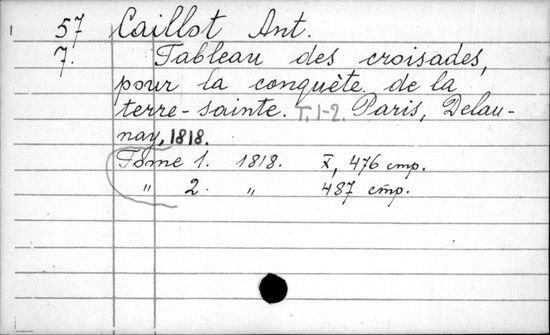 57 Caillot Ant.
7. Tableau des croisades,
pour la conquète de la
terre-sainte. T. 1-2. Paris, Delau-
nay, 1818.
Tome 1. 1818. X, 476 стр.
" 2. " 487 стр.